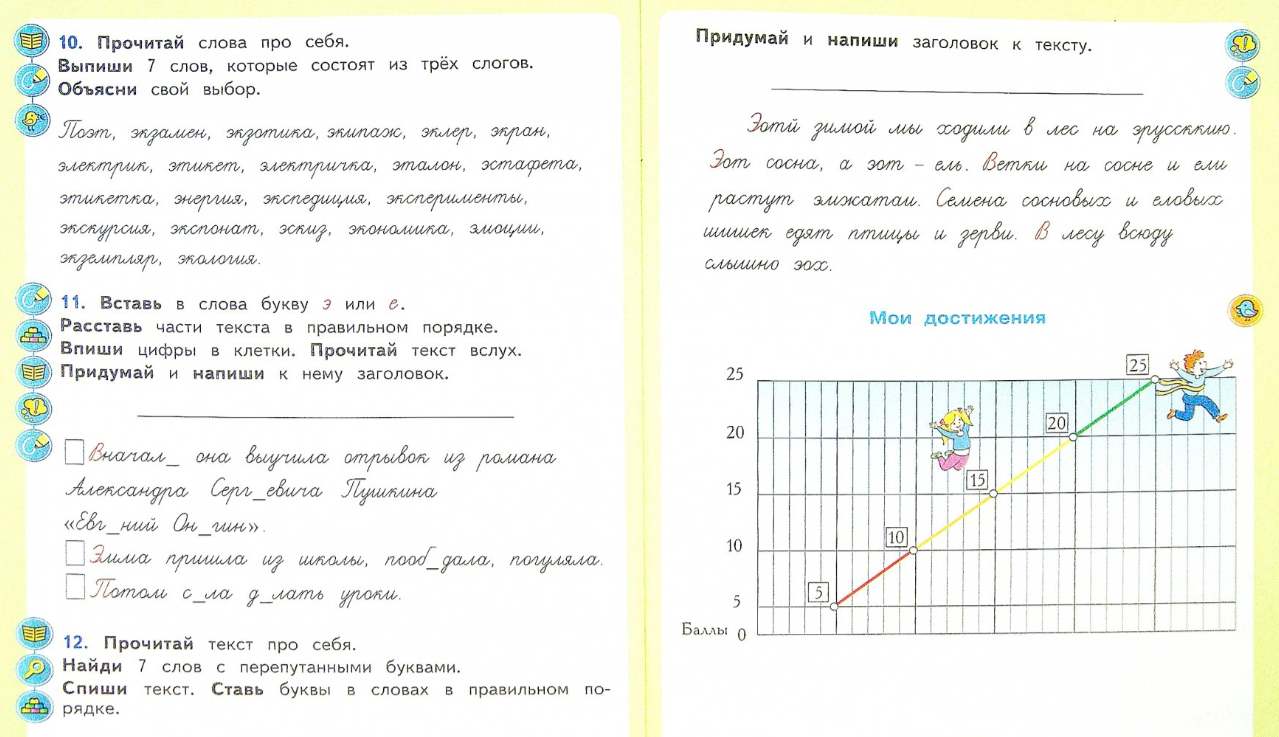 10. Прочитай слова про себя.
Выпиши 7 слов, которые состоят из трёх слогов.
Объясни свой выбор.
Поэт, экзамен, экзотика, экипаж, эклер, экран,
электрик, этикет, электричка, эталон, эстафета,
этикетка, энергия, экспедиция, эксперименты,
экскурсия, экспонат, эскиз, экономика, эмоции,
экземпляр, экология.
11. Вставь в слова букву э или е.
Расставь части текста в правильном порядке.
Впиши цифры в клетки. Прочитай текст вслух.
Придумай и напиши к нему заголовок.
Вначал_ она выучила отрывок из романа
Александра Серг_евича Пушкина
«Евг_ний Он_гин».
Эмма пришла из школы, пооб_дала, погуляла.
Потом с_ла д_лать уроки.
12. Прочитай текст про себя.
Найди 7 слов с перепутанными буквами.
Спиши текст. Ставь буквы в словах в правильном по-
рядке.
Придумай и напиши заголовок к тексту.
Эотй зимой мы ходили в лес на эруссккию.
Эот сосна, а эот – ель. Ветки на сосне и ели
растут эмжатаи. Семена сосновых и еловых
шишек едят птицы и зерви. В лесу всюду
слышно эох.
Мои достижения
25
25
20
20
15
15
10
10
5
5
Баллы 0